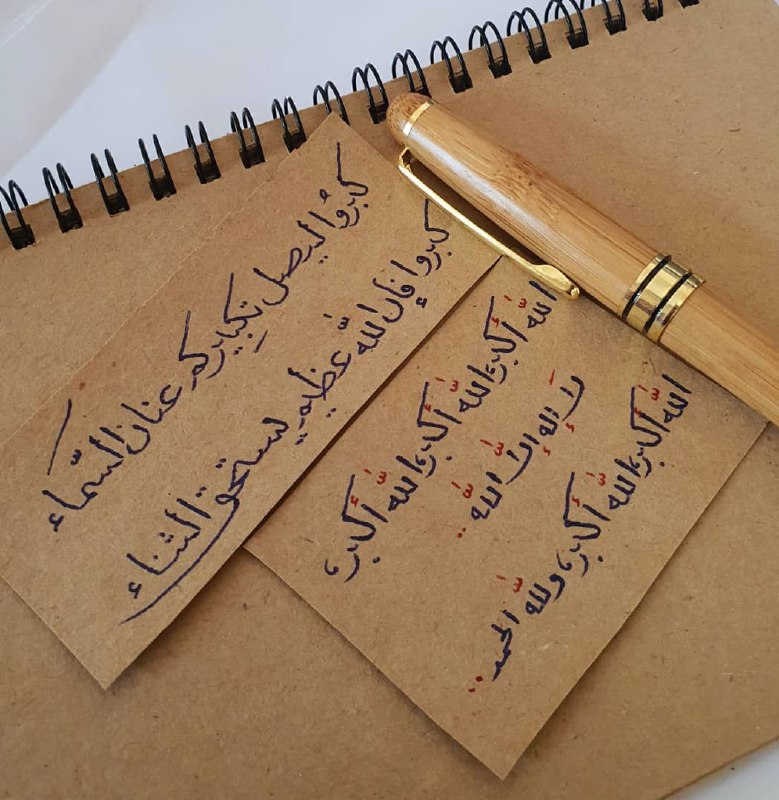 كبروُا ليصل تكبيركم عنان السّماء
كبروا فإن اللّٰه عظيم يستحق الثناء
اللّٰه أكبر، اللّٰه أكبر، اللّٰه أكبر،
لَا إله إلا اللّٰه..
اللّٰه أكبر، اللّٰه أكبر، وللّٰه الحمد..